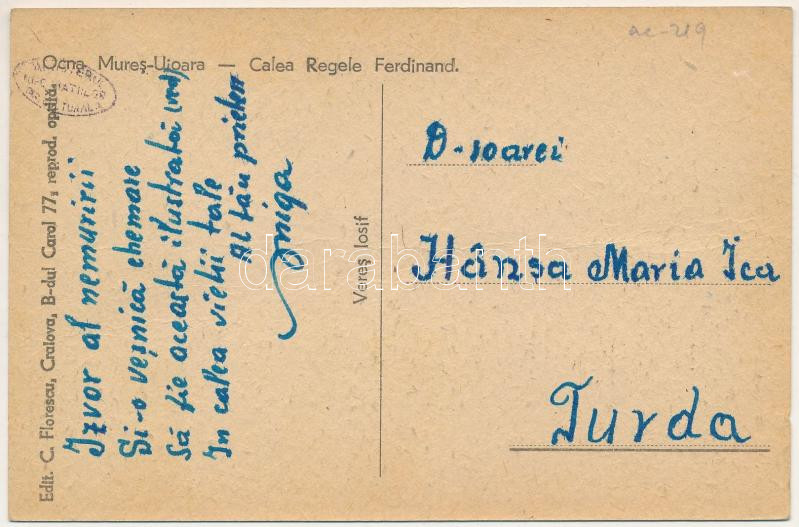 ac-219
Ocna Mureș-Uioara — Calea Regele Ferdinand.
Edit. C. Florescu, Craiova, B-dul Carol 77, reprod. oprită.
Izvor al nemuririi
Și-o veșnică chemare
Să fie această ilustrată (ved)
In calea vieții tale
Al tău prieten
Veres Iosif
D-șoarei
Hânsa Maria Ica
Turda
darabanth